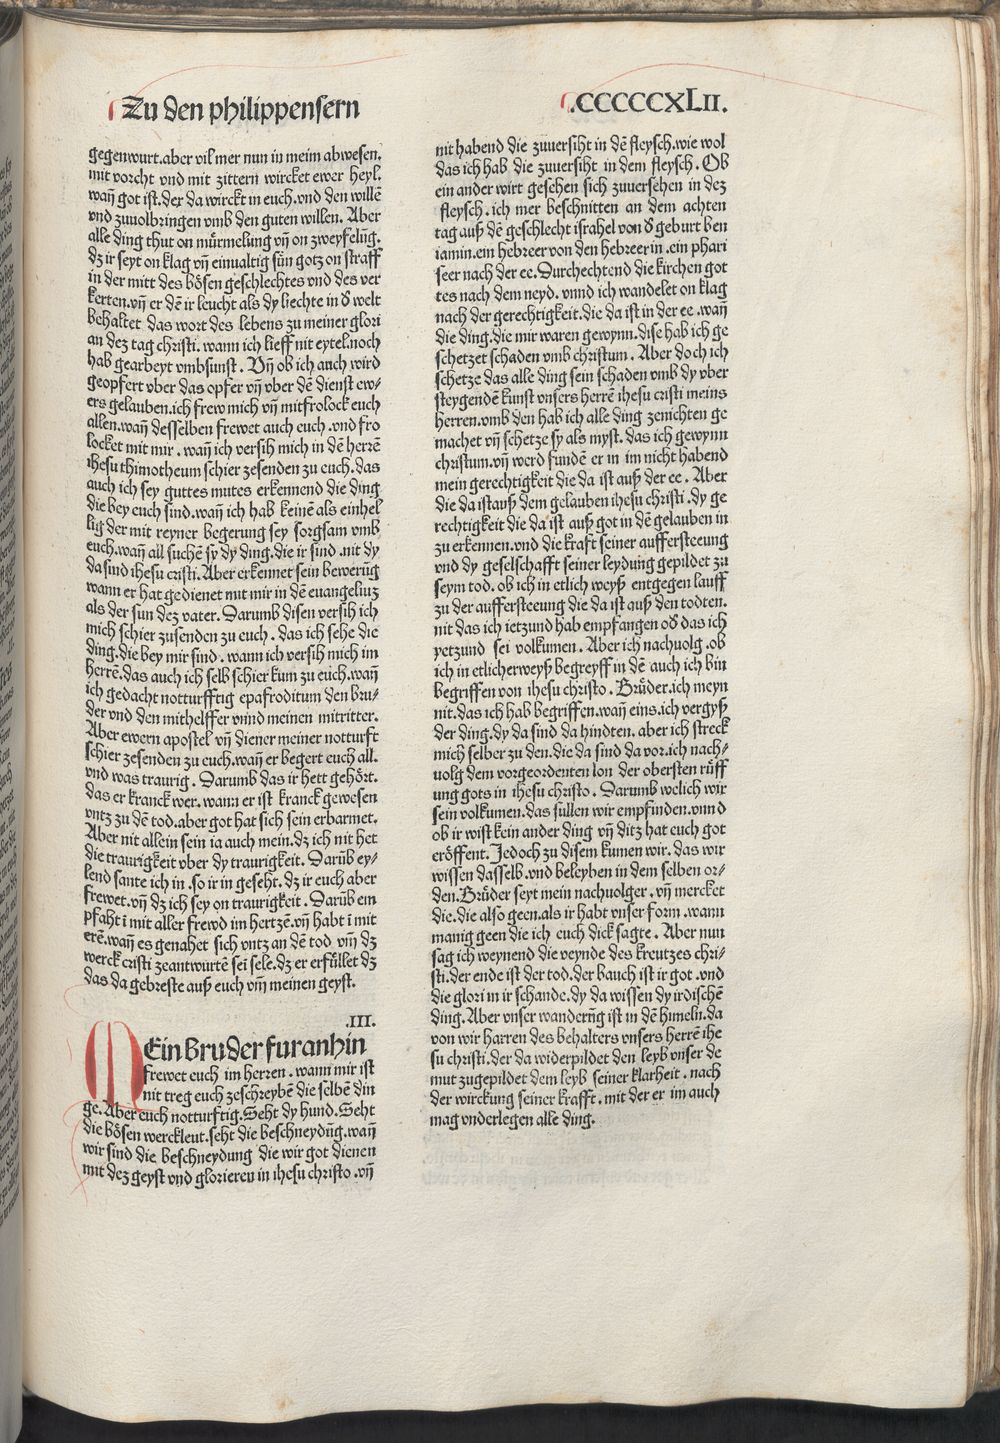 Zu den philippensern
.CCCCCCXLII.
gegenwurt.aber vil mer nun in meim abwesen.
mit vorcht vnd mit zittern wircket ewer heyl.
wañ got ist.der da wirckt in euch.vnd den willẽ
vnd zuuolbringen vmb den guten willen. Aber
alle ding thut on mürmelung vñ on zweyfelũg.
dz ir seyt on klag vñ einualtig sün gotz on straff
in der mitt des bösen geschlechtes vnd des ver
kerten.vñ er dẽ ir leucht als dy liechte in d̕ welt
behaltet das wort des lebens zu meiner glori
an dez tag christi. wann ich lieff nit eytel.noch
hab gearbeyt vmbsunst. Vñ ob ich auch wird
geopfert vber das opfer vñ vber dẽ dienst ew/
ers gelauben.ich frew mich vñ mitfrolock euch
allen.wañ desselben frewet auch euch.vnd fro
locket mit mir. wañ ich versih mich in dẽ herrẽ
ihesu thimotheum schier zesenden zu euch.das
auch ich sey guttes mutes erkennend die ding
die bey euch sind.wañ ich hab keinẽ als einhel
lig der mit reyner begerung sey sorgsam vmb
euch.wañ all suchẽ sy dy ding.die ir sind.nit dy
da sind ihesu cristi.Aber erkennet sein bewerũg
wann er hat gedienet mit mir in dẽ euangeliuz
als der sun dez vater. Darumb disen versih ich
mich schier zusenden zu euch. das ich sehe die
ding.die bey mir sind. wann ich versih mich im
herrẽ.das auch ich selb schier kum zu euch.wañ
ich gedacht notturfftig epafroditum den bru/
der vnd den mithelffer vnnd meinen mitritter.
Aber ewern apostel vñ diener meiner notturft
schier zesenden zu euch.wañ er begert euch all.
vnd was traurig. Darumb das ir hett gehört.
das er kranck wer.wann er ist kranck gewesen
vntz zu dẽ tod.aber got hat sich sein erbarmet.
Aber nit allein sein ia auch mein.dz ich nit het
die traurigkeit vber dy traurigkeit. Darũb ey/
lend sante ich in.so ir in geseht.dz ir euch aber
frewet.vñ dz ich sey on traurigkeit. Darũb em
pfaht ĩ mit aller frewd im hertzẽ.vñ habt ĩ mit
erẽ.wañ es genahet sich vntz an dẽ tod vm̃ dz
werck cristi zeantwurtẽ sei sele.dz er erfüllet dz
das da gebreste auß euch vm̃ meinen geyst.
.III.
MEin Bruder furanhin
frewet euch im herren. wann mir ist
nit treg euch zeschreybẽ die selbẽ din
ge.Aber euch notturftig.Seht dy hund.Seht
die bösen werckleut.seht die beschneydũg.wañ
wir sind die beschneydung die wir got dienen
mit dez geyst vnd glorieren in ihesu christo.vñ
nit habend die zuuersiht in dẽ fleysch.wie wol
das ich hab die zuuersiht in dem fleysch. Ob
ein ander wirt gesehen sich zuuersehen in dez
fleysch. ich mer beschnitten an dem achten
tag auß dẽ geschlecht israhel von d̕ geburt ben
iamin.ein hebreer von den hebreern.ein phari
seer nach der ee.Durchechtend die kirchen got
tes nach dem neyd. vnnd ich wandelet on klag
nach der gerechtigkeit.die da ist in der ee.wañ
die ding.die mir waren gewynn.dise hab ich ge
schetzet schaden vmb christum. Aber doch ich
schetze das alle ding sein schaden vmb dy vber
steygendẽ kunst vnsers herrẽ ihesu cristi meins
herren.vmb den hab ich alle ding zenichten ge
machet vñ schetze sy als myst.das ich gewynn
christum.vñ werd fundẽ er in im nicht habend
mein gerechtigkeit die da ist auß der ee. Aber
die da ist auß dem gelauben ihesu christi.dy ge
rechtigkeit die da ist auß got in dẽ gelauben in
zu erkennen.vnd die kraft seiner aufferstceung
vnd dy geselschafft seiner leydung gepildet zu
seym tod. ob ich in etlich weyß entgegen lauff
zu der aufferstceung die da ist auß den todten.
nit das ich ietzund hab empfangen od̕ das ich
yetzund sei volkumen. Aber ich nachuolg.ob
ich in etlicherweyß begreyff in dẽ auch ich bin
begriffen von ihesu christo. Brüder.ich meyn
nit.das ich hab begriffen.wañ eins.ich vergyß
der ding.dy da sind da hindten. aber ich streck
mich selber zu den.die da sind da vor.ich nach/
uolg dem vorgeordenten lon der obersten rüff
ung gots in ihesu christo. Darumb welich wir
sein volkumen.das süllen wir empfinden.vnnd
ob ir wist kein ander ding vñ ditz hat euch got
eröffent. Jedoch zu disem kumen wir.das wir
wissen dasselb.vnd beleyben in dem selben or/
den.Brüder seyt mein nachuolger.vñ mercket
die.die also geen.als ir habt vnser form.wann
manig geen die ich euch dick sagte. Aber nun
sag ich weynend die veynde des kreutzes chri/
sti.der ende ist der tod.der bauch ist ir got.vnd
die glori in ir schande.dy da wissen dy irdischẽ
ding.Aber vnser wanderũg ist in dẽ himeln.da
von wir harren des behalters vnsers herrẽ ihe
su christi.der da widerpildet den leyb vnser de
mut zugepildet dem leyb seiner klarheit. nach
der wirckung seiner krafft. mit der er im auch
mag vnderlegen alle ding.